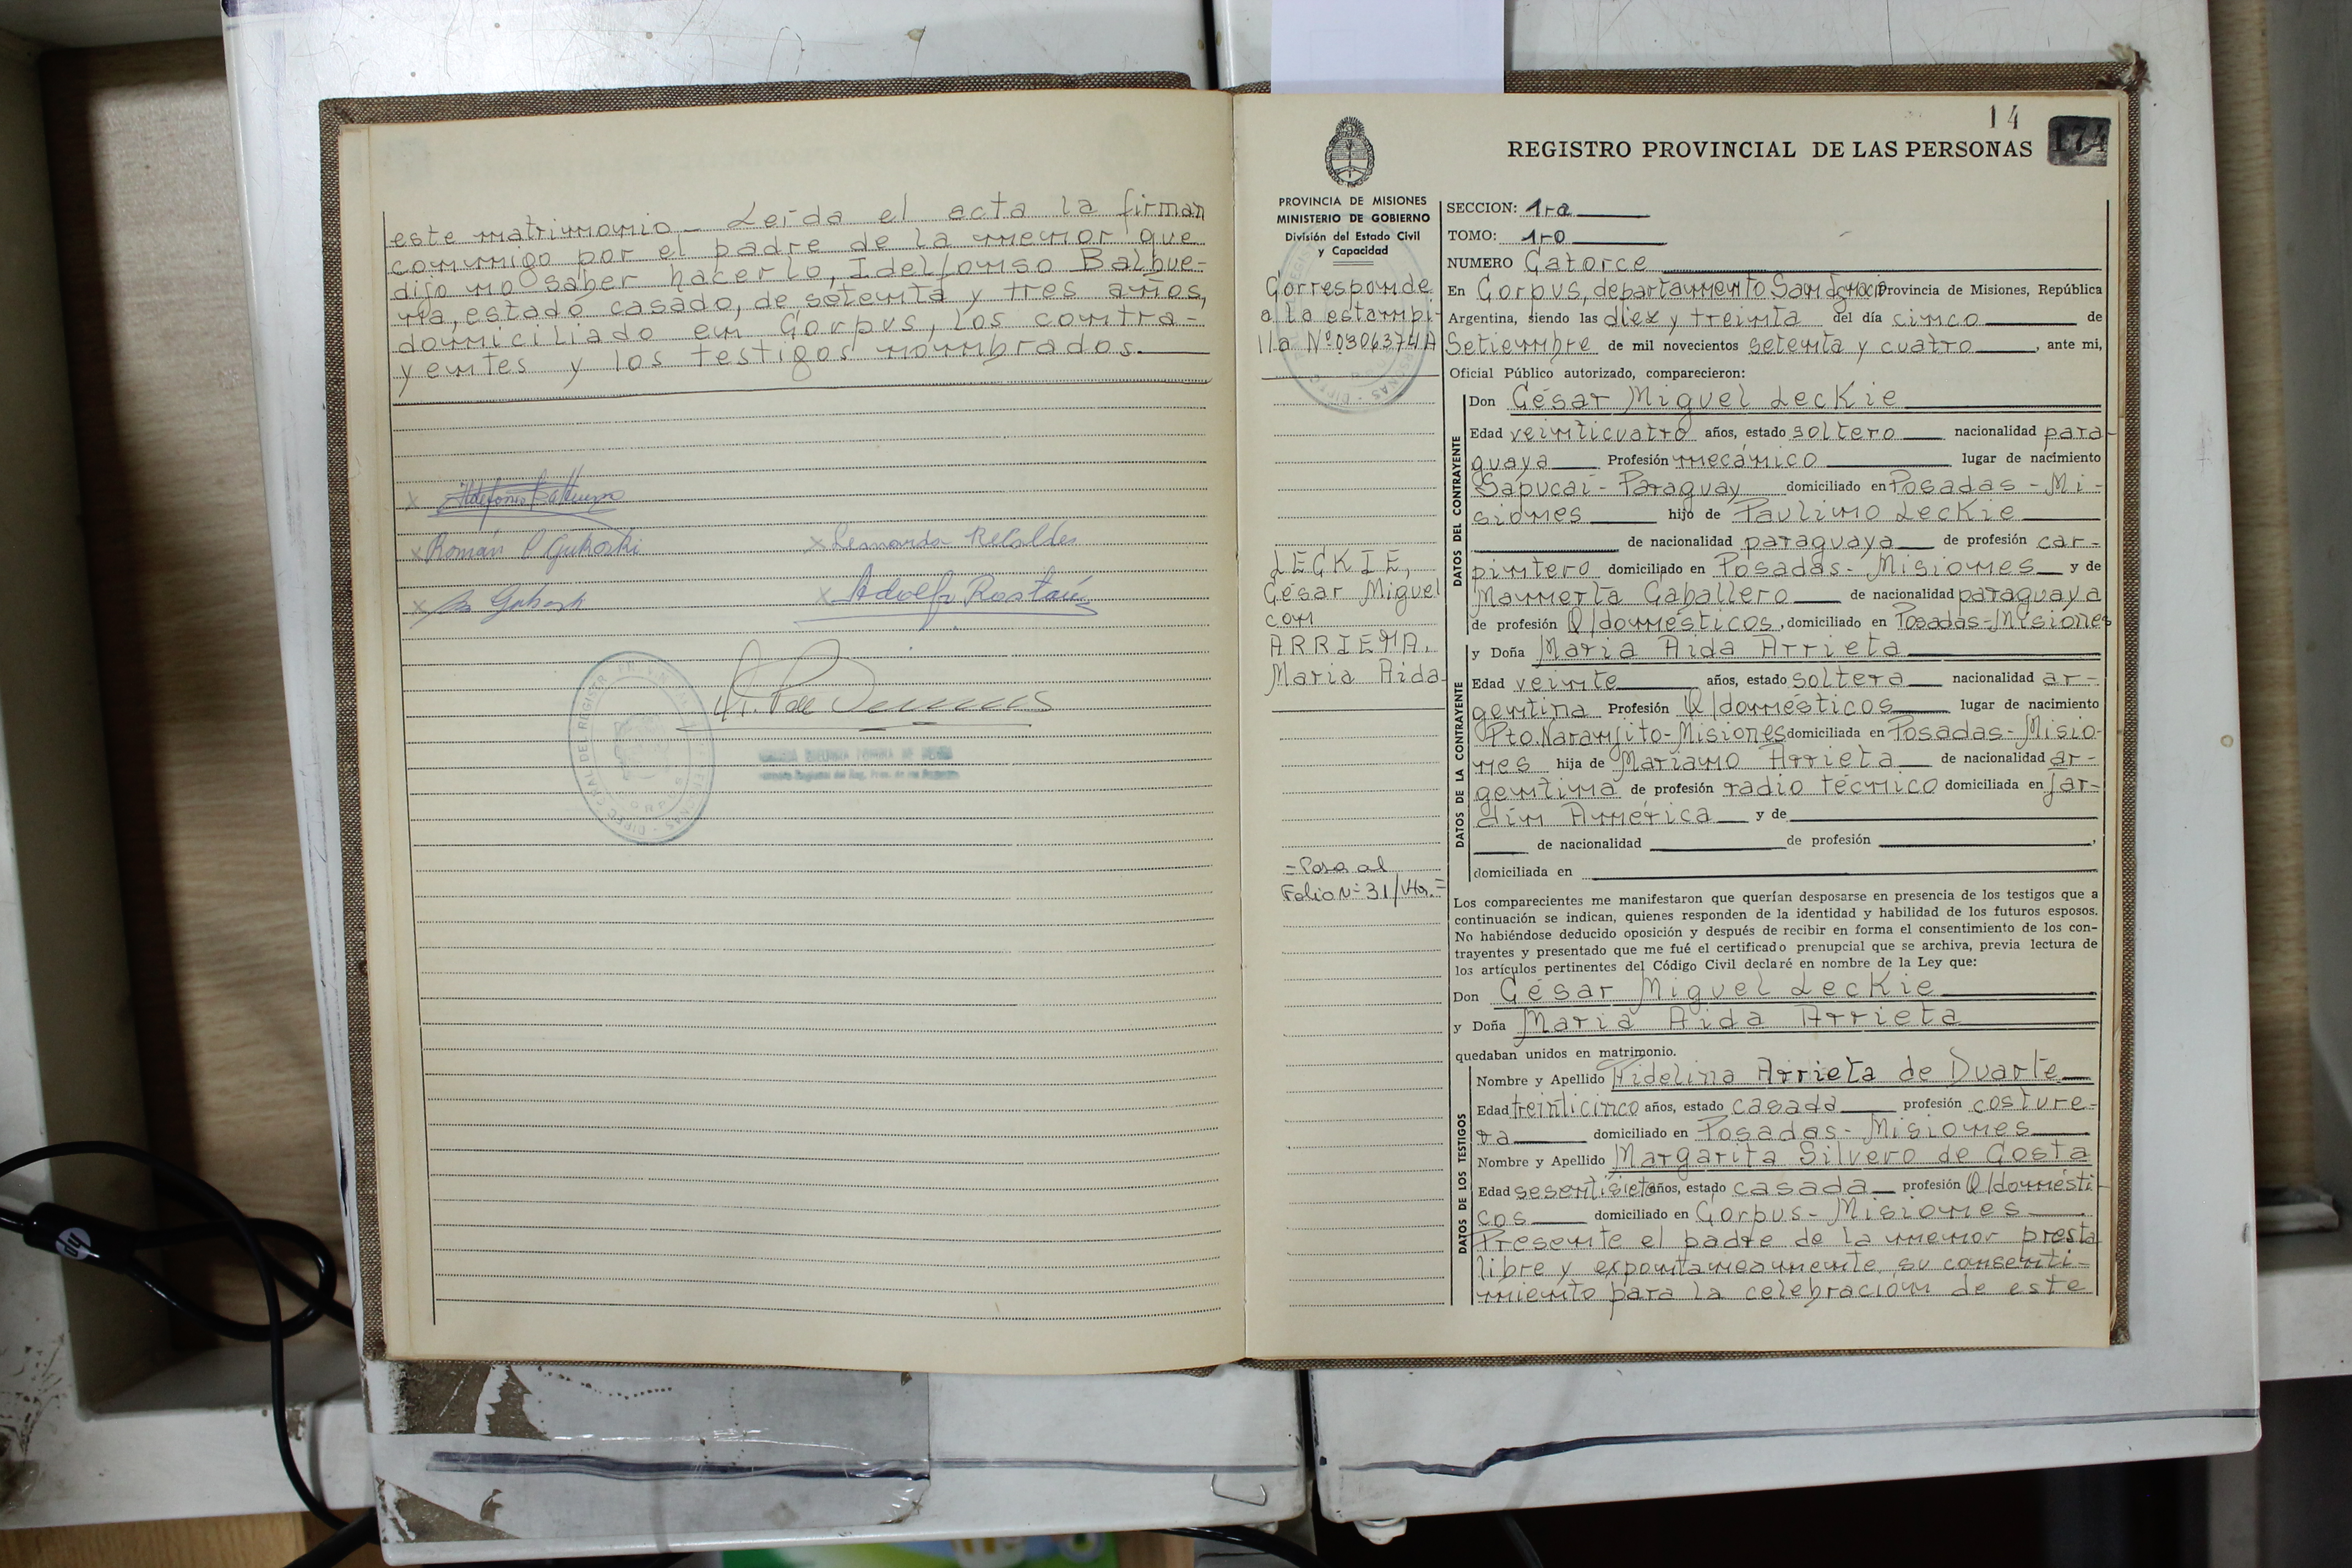 este matrimonio_ Leída el acta la firman
conmigo por el padre de la menor que
dijo no saber hacerlo, Idelfonso Balbue-
na, estado casado, de setenta y tres años,
domiciliado en Corpus, los contra-
yentes y los testigos nombrados.
x Ildefonso Balbuena
x Román
x Leonarda Recalde
x
x Adolfo
14
174
REGISTRO PROVINCIAL DE LAS PERSONAS
PROVINCIA DE MISIONES
MINISTERIO DE GOBIERNO
División del Estado Civil
y Capacidad
Corresponde
a la estampi-
lla Nº0306374A
LECKIE,
César Miguel
con
ARRIETA,
Maria Aida
=Pasa al
Folio Nº 31/Vto.=
SECCION: 1-ra
TOMO: 1-ro
NUMERO Catorce
En Corpus, departamento San Ignacio Provincia de Misiones, República
Argentina, siendo las diez y treinta del día cinco de
Setiembre de mil novecientos setenta y cuatro, ante mi,
Oficial Público autorizado, comparecieron:
DATOS DEL CONTRAYENTE
Don César Miguel Leckie
Edad veinticuatro años, estado soltero nacionalidad para-
guaya Profesión mecánico lugar de nacimiento
Sapucai- Paraguay domiciliado en Posadas - Mi-
siones hijo de Paulino Leckie
de nacionalidad paraguaya de profesión car-
pintero domiciliado en Posadas- Misiones y de
Mamerta Caballero de nacionalidad paraguaya
de profesión Q/domésticos, domiciliado en Posadas-Misiones
DATOS DE LA CONTRAYENTE
y Doña Maria Aida Arrieta
Edad veinte años, estado soltera nacionalidad ar-
gentina Profesión Q/domésticos lugar de nacimiento
Pto. Naranjito-Misiones domiciliada en Posadas- Misio-
nes hija de Mariano Arrieta de nacionalidad ar-
gentina de profesión radio técnico domiciliada en Jar-
din América y de
de nacionalidad de profesión ,
domiciliada en
Los comparecientes me manifestaron que querían desposarse en presencia de los testigos que a
continuación se indican, quienes responden de la identidad y habilidad de los futuros esposos.
No habiéndose deducido oposición y después de recibir en forma el consentimiento de los con-
trayentes y presentado que me fué el certificado prenupcial que se archiva, previa lectura de
los artículos pertinentes del Código Civil declaré en nombre de la Ley que:
Don César Miguel Leckie
y Doña Maria Aida Arrieta
quedaban unidos en matrimonio.
DATOS DE LOS TESTIGOS
Nombre y Apellido Fidelina Arrieta de Duarte
Edad treinticinco años, estado casada profesión costure-
ra domiciliado en Posadas- Misiones
Nombre y Apellido Margarita Silvero de Costa
Edad sesentisiete años, estado casada profesión Q/domésti-
cos domiciliado en Corpus- Misiones
Presente el padre de la menor presta
libre y expontaneamente su consenti-
miento para la celebración de este
hp